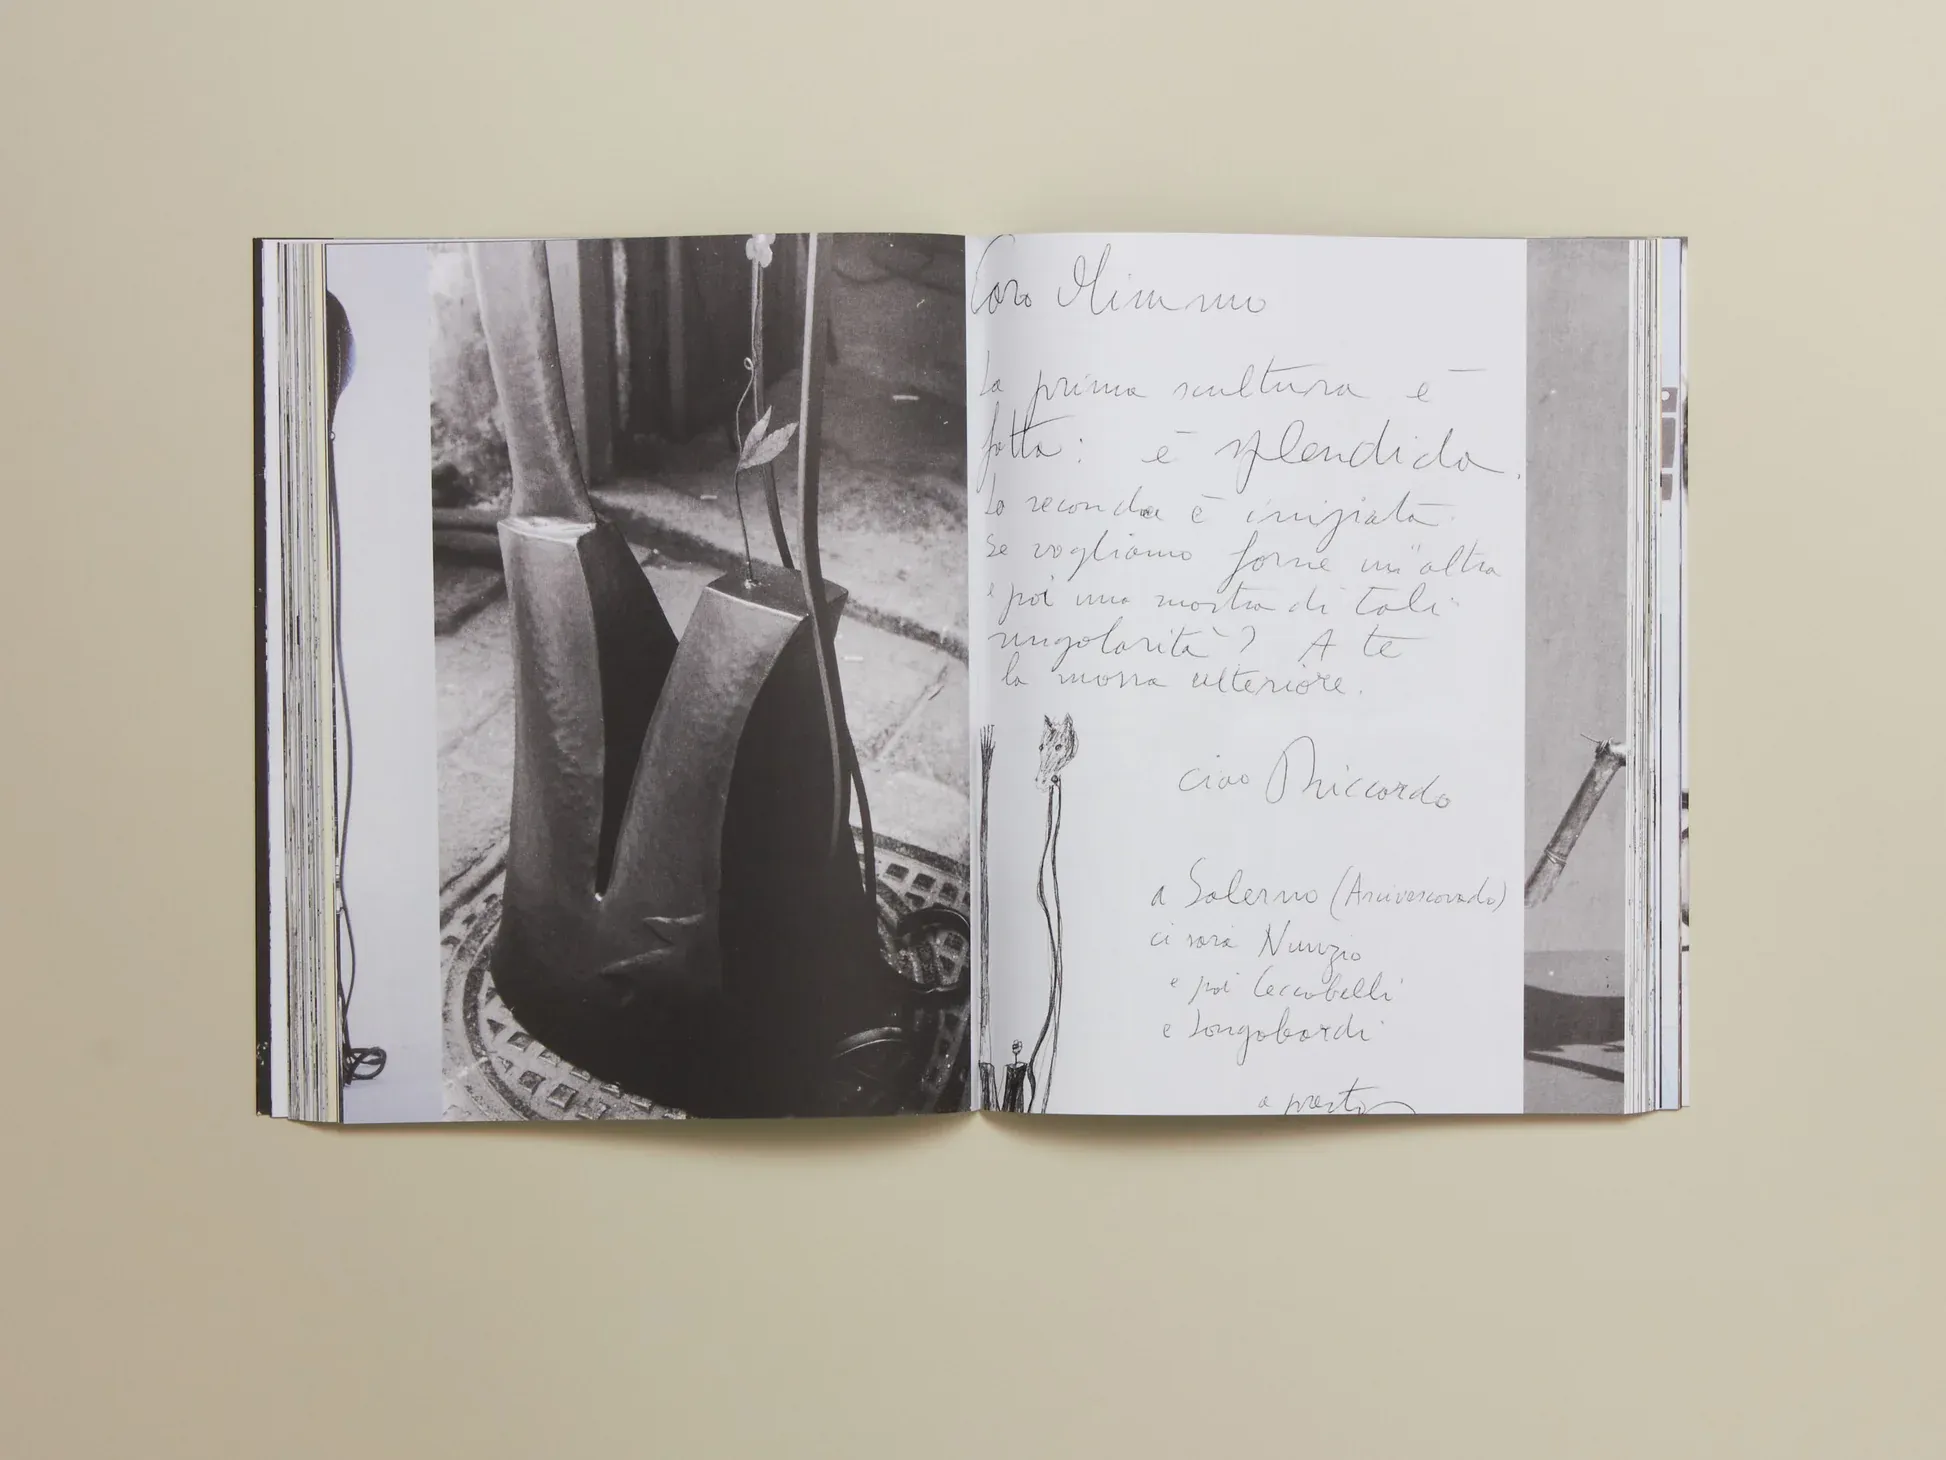 Caro Mimmo
la prima scultura è
fatta: è splendida.
la seconda è iniziata.
se vogliamo farne un'altra
e poi una mostra di tali
singolarità? A te
la mossa ulteriore.
ciao Riccardo
a Salerno (Arcivescovado)
ci sarà Nunzio
e poi Ceccobelli
e Longobardi
a presto